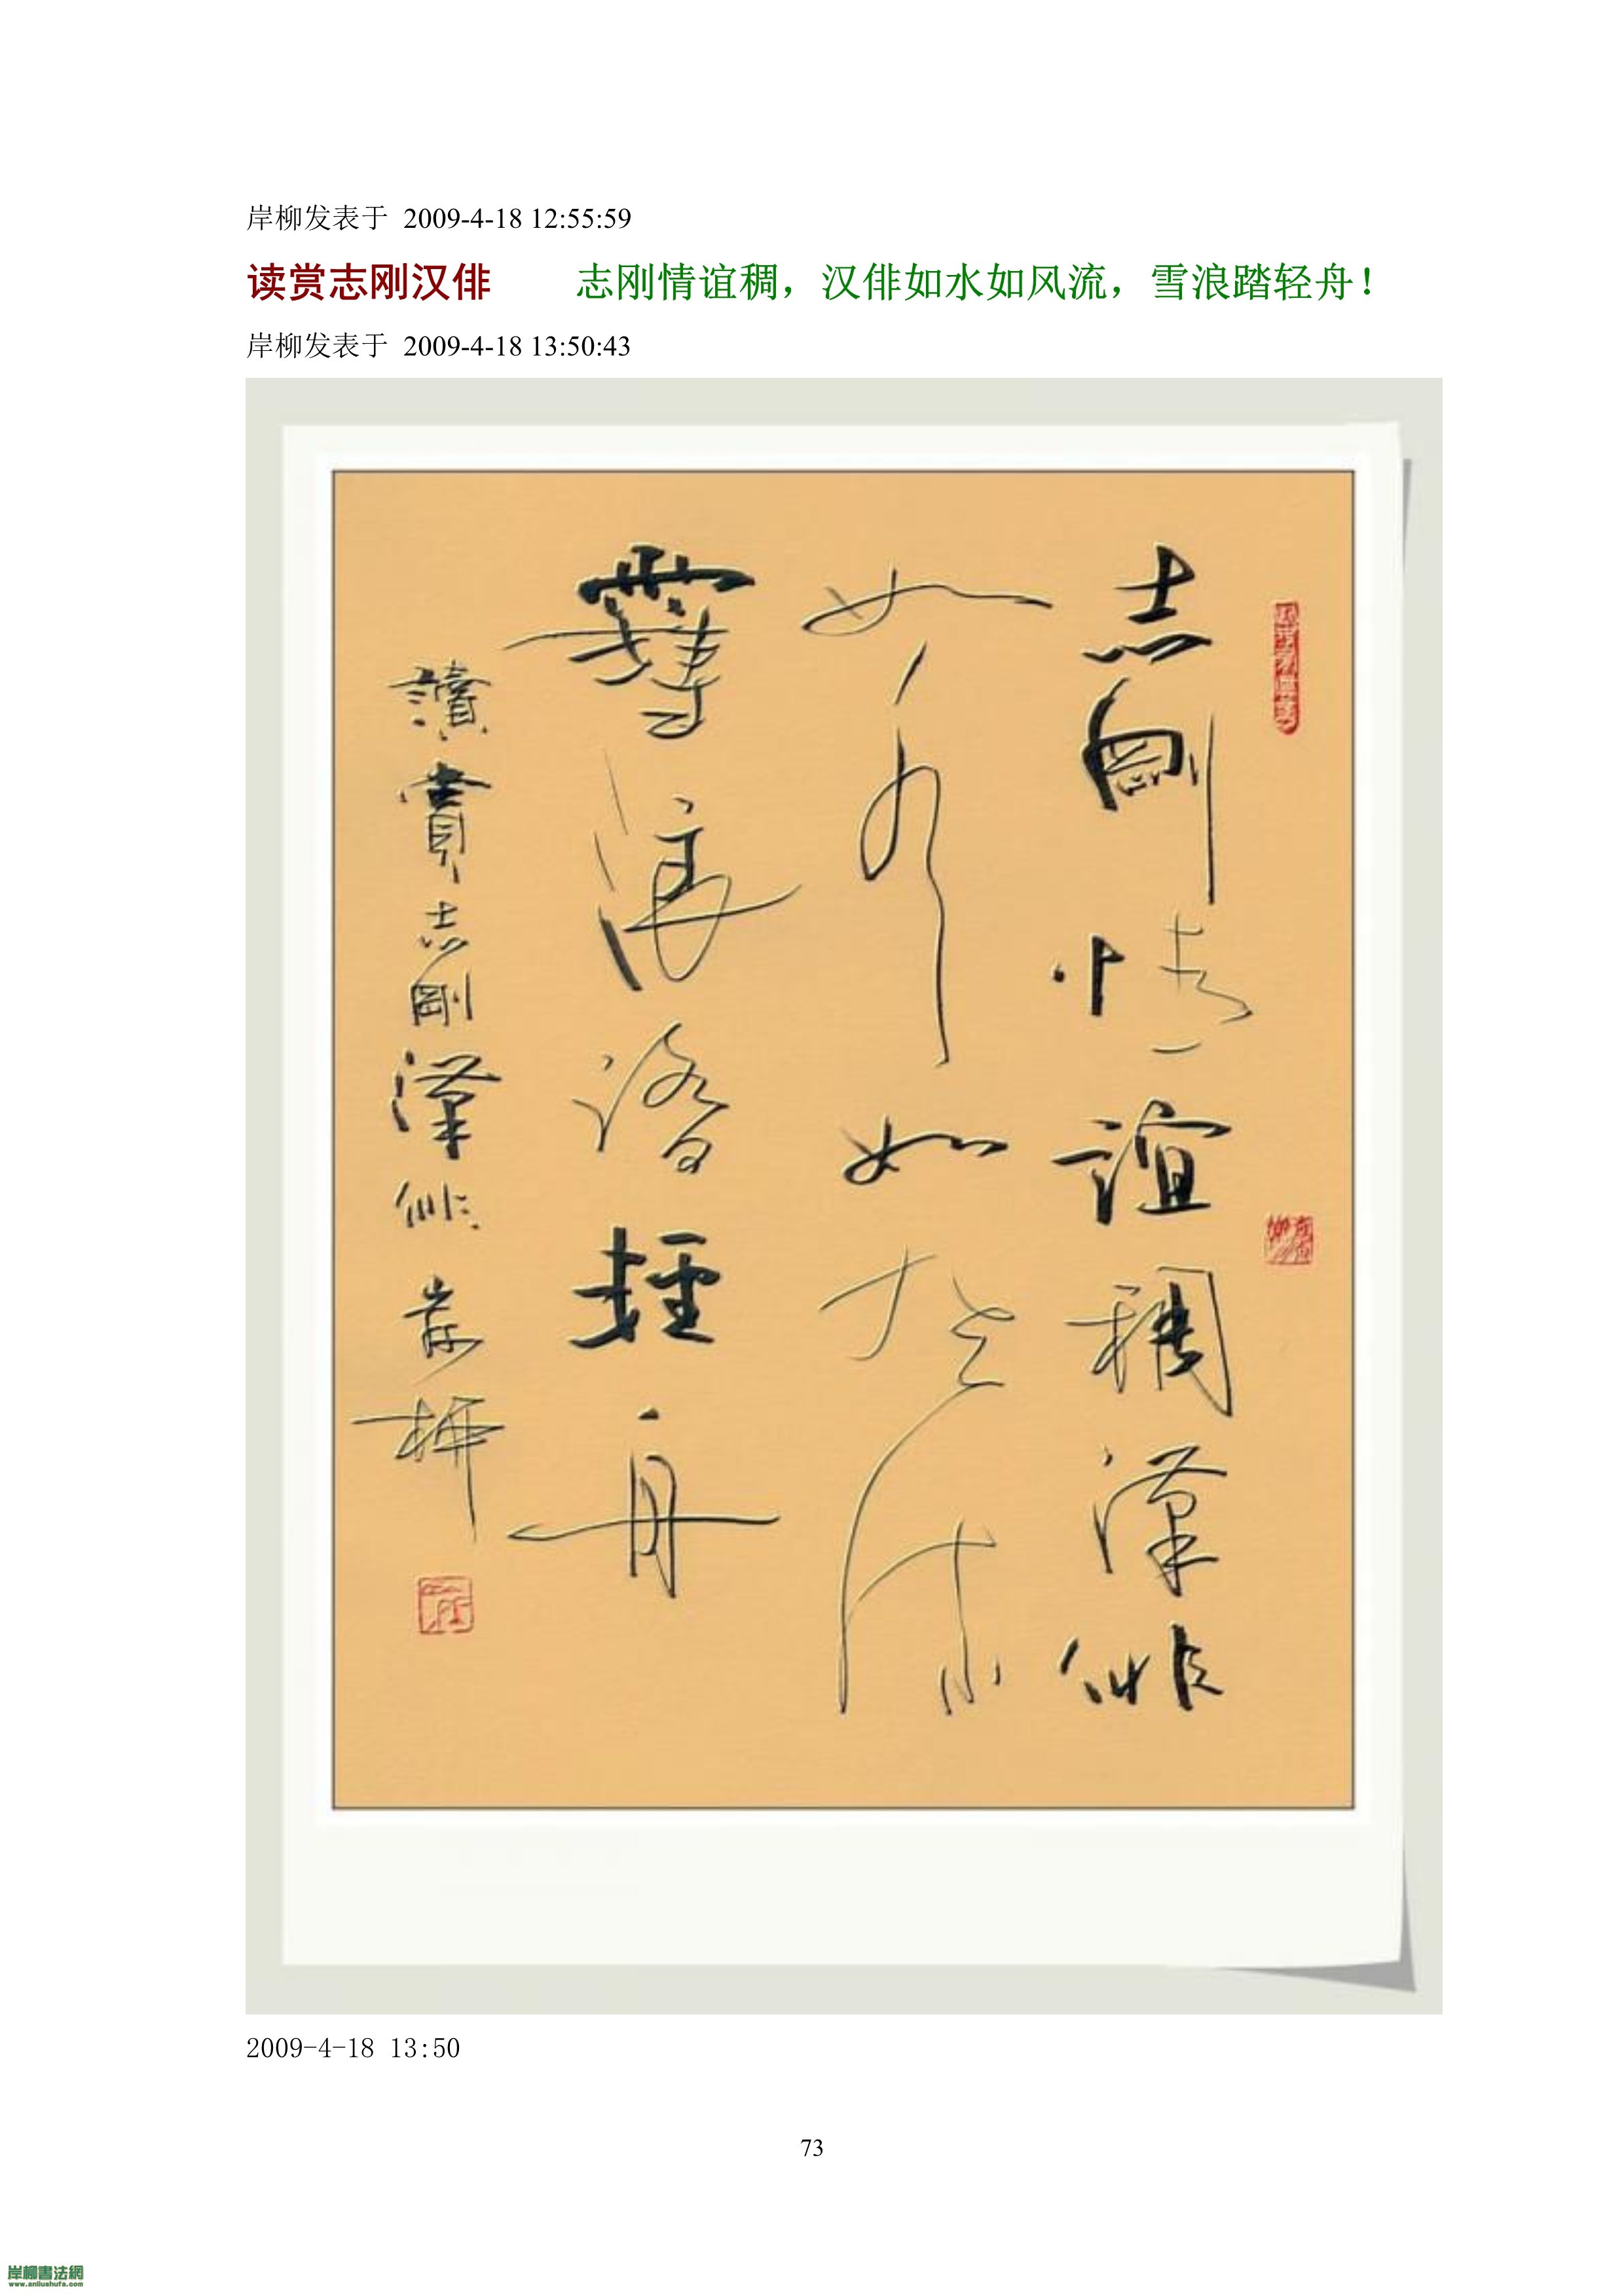 岸柳发表于 2009-4-18 12:55:59
读赏志刚汉俳 志刚情谊稠，汉俳如水如风流，雪浪踏轻舟！
岸柳发表于 2009-4-18 13:50:43
志剛情誼稠漢俳
如水如風流
雪浪踏輕舟
讀賞志剛漢俳 岸柳
2009-4-18 13:50
73
岸柳書法網
www.anliushufa.com